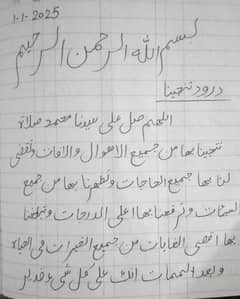 1-1-2025
بسم الله الرحمن الرحيم
درود تنجينا
اللهم صل على سيدنا محمد صلاة
تنجينا بها من جميع الاهوال والافات وتقضى
لنا بها جميع الحاجات وتطهرنا بها من جميع
السئات وترفعنا بها اعلى الدرجات وتبلغنا
بها اقصى الغايات من جميع الخيرات فى الحياة
وبعد الممات انك على كل شىء قدير